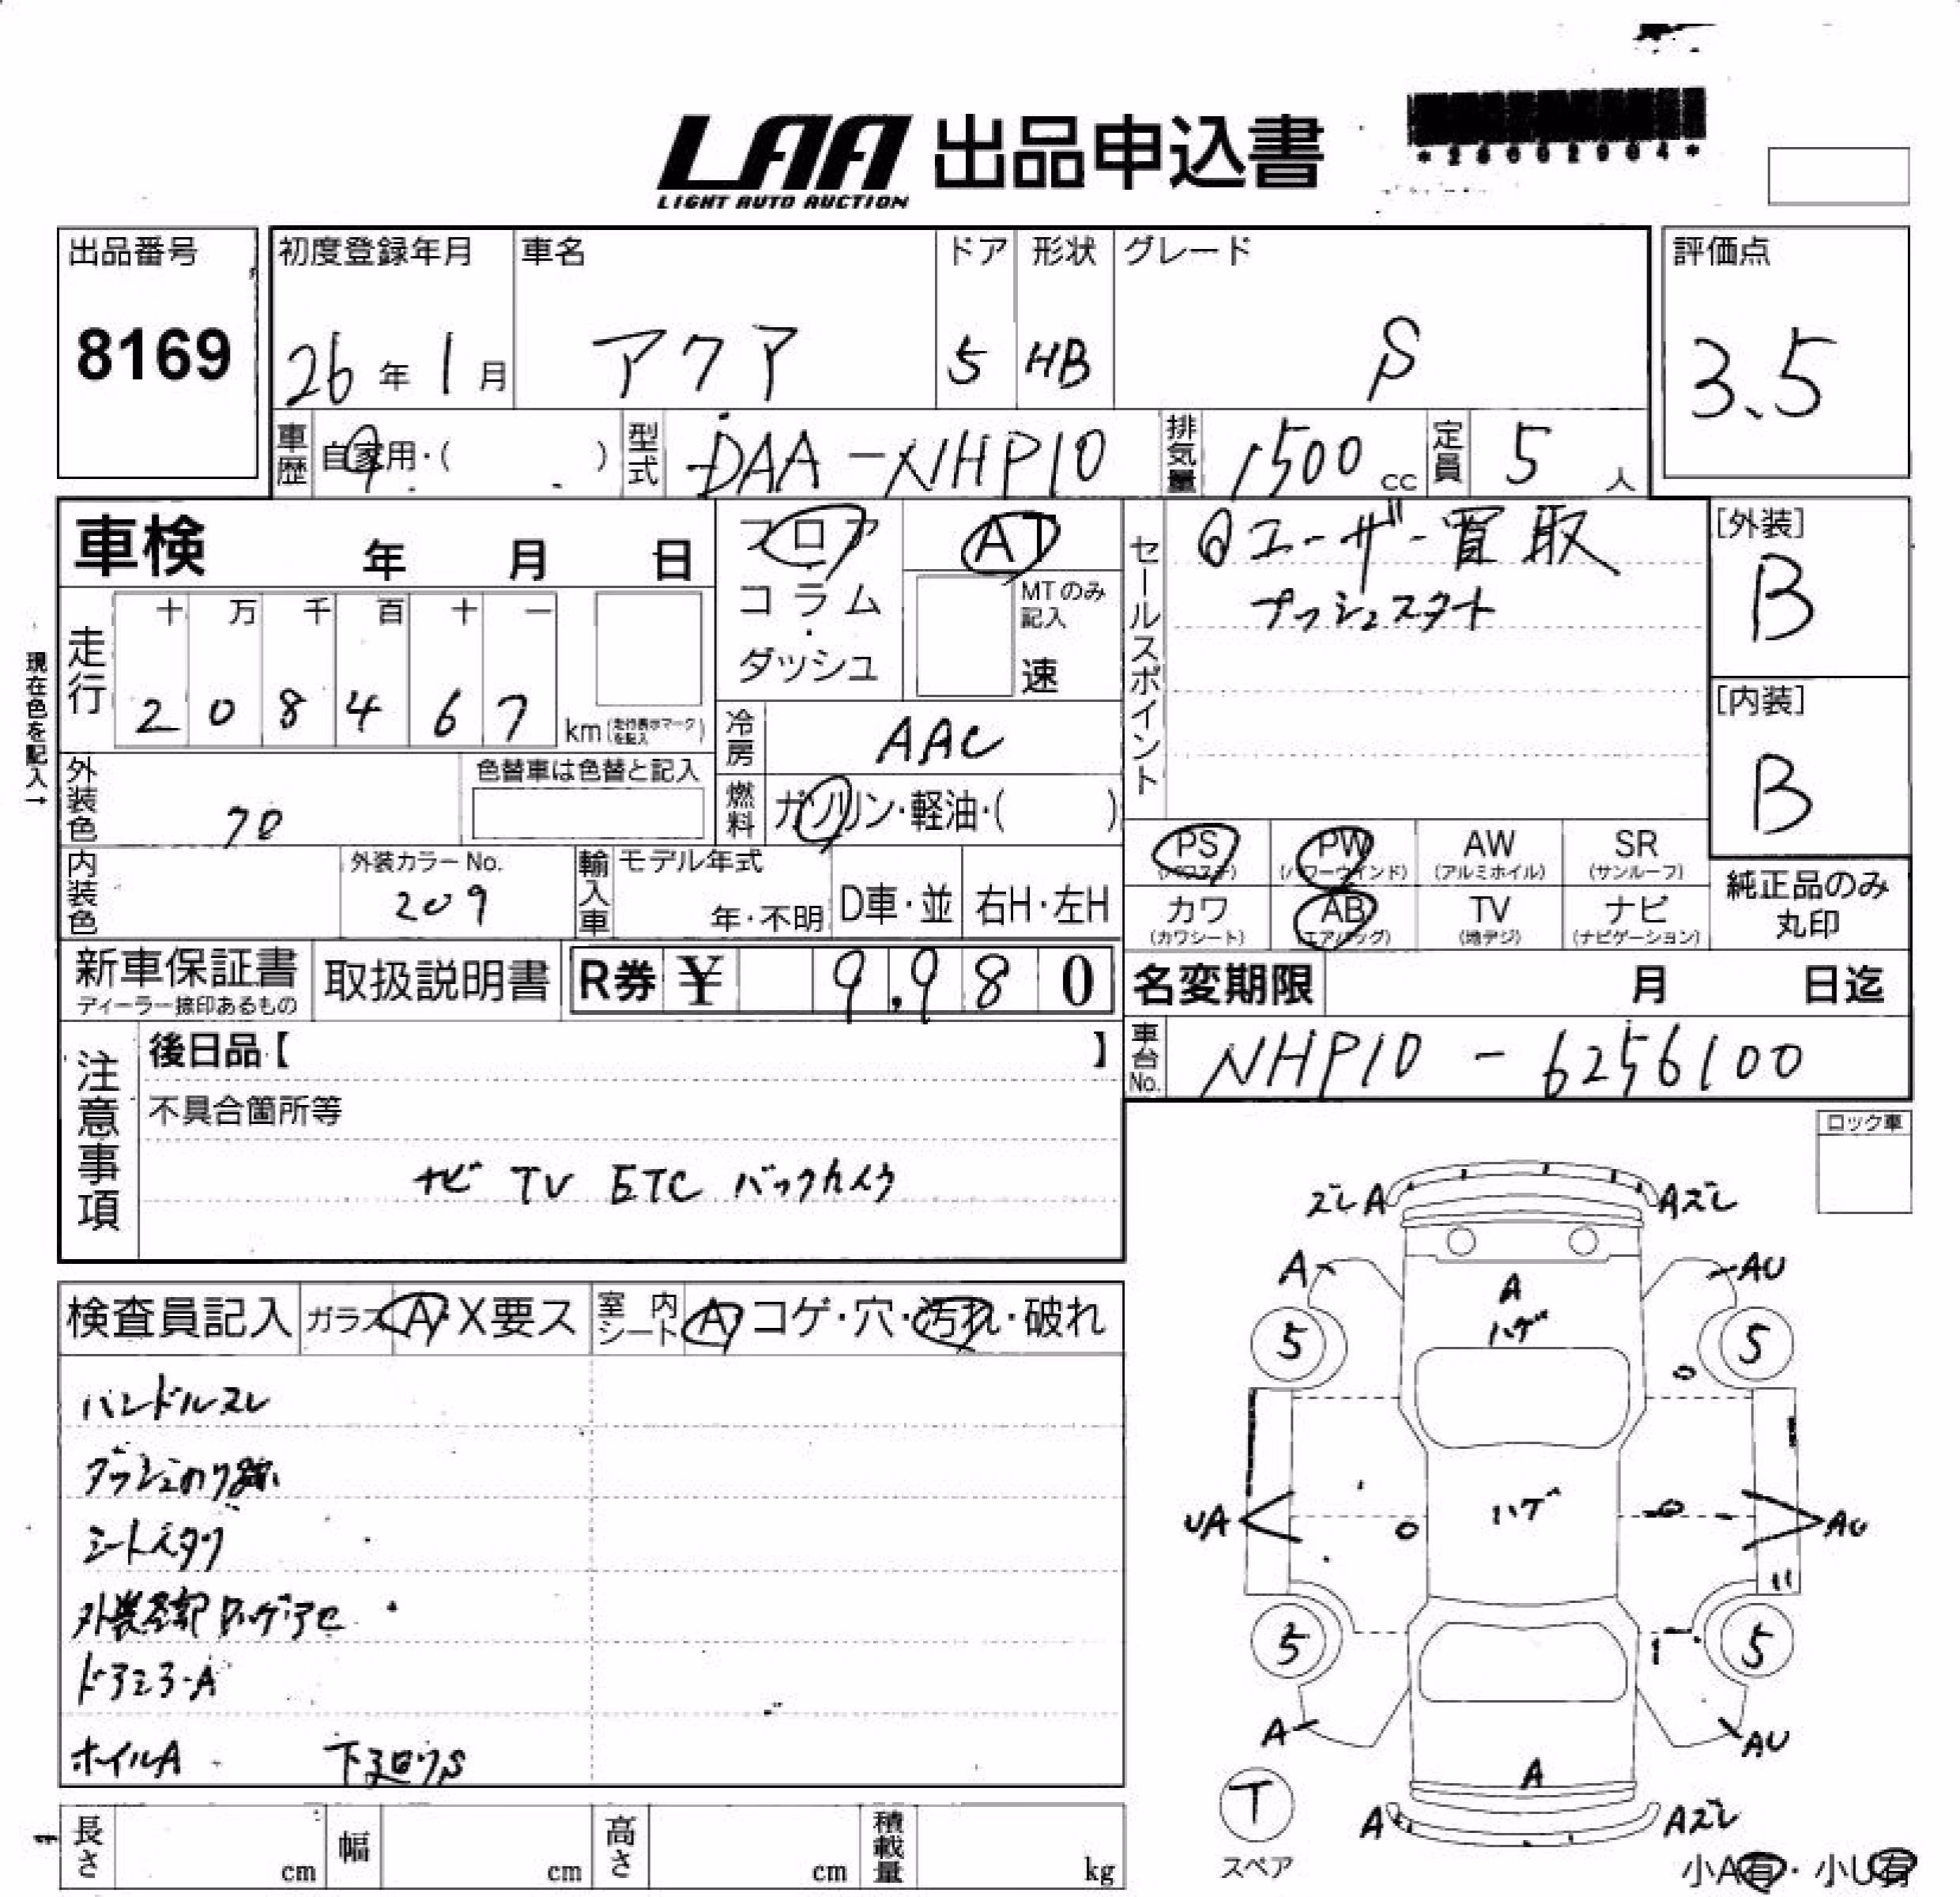 LAA 出品申込書
LIGHT AUTO AUCTION
出品番号
8169
初度登録年月 車名 ドア 形状 グレード
26年1月 アクア 5 HB S
評価点
3.5
車歴 自家用・( ) 型式 DAA-NHP10 排気量 1500cc 定員 5人
車検 年 月 日
フロア
コラム
ダッシュ
AT
MTのみ記入
速
セールスポイント
ユーザー買取
プッシュスタート
[外装]
B
[内装]
B
現在色を記入→
走行
十 万 千 百 十 一
2 0 8 4 6 7 km(走行表示マークを記入)
冷房 AAC
外装色 70
色替車は色替と記入
燃料 ガソリン・軽油・( )
内装色
外装カラーNo.
209
輸入車 モデル年式
年・不明 D車・並 右H・左H
PS (パワステ) PW (パワーウインド) AW (アルミホイル) SR (サンルーフ)
カワ (カワシート) AB (エアバッグ) TV (地デジ) ナビ (ナビゲーション)
純正品のみ
丸印
新車保証書
ディーラー捺印あるもの
取扱説明書
R券 ¥ 9,980
名変期限 月 日迄
車台No. NHP10-6256100
注意事項
後日品【 】
不具合箇所等
ナビ TV ETC バックカメラ
ロック車
検査員記入 ガラス A・X要ス 室内シート A コゲ・穴・汚れ・破れ
ハンドルスレ
ダッシュのり跡
シートヘタリ
ドアミラーA
ホイルA 下廻りS
ズレA Aズレ
A AU
A
ハゲ
5 5
UA ハゲ AU
5 5
A AU
A
T
スペア
A Aズレ
小A有・小U有
長さ cm 幅 cm 高さ cm 積載量 kg